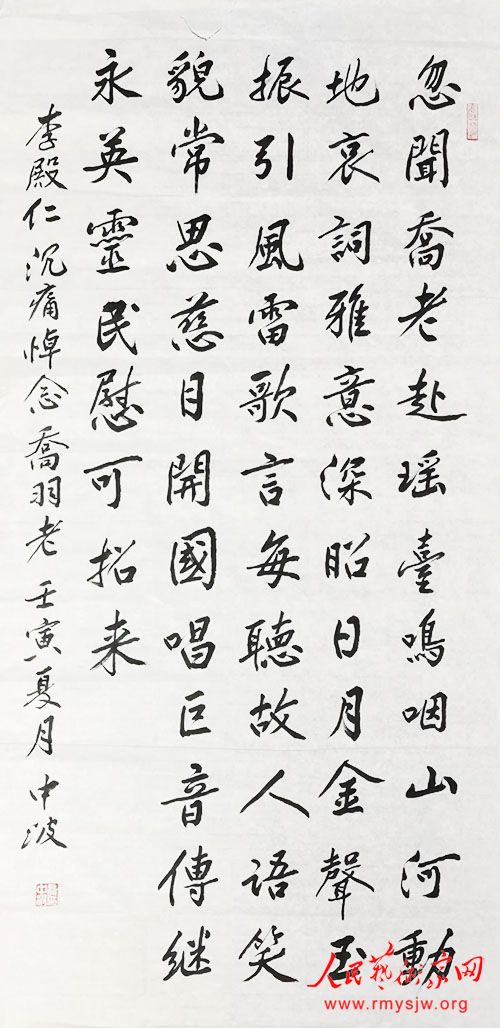 忽聞喬老赴瑶臺鳴咽山河動
地哀詞雅意深昭日月金聲玉
振引風雷歌言每聽故人語笑
貌常思慈目開國唱巨音傳継
永英靈民慰可招来
李殿仁沉痛悼念喬羽老 壬寅夏月 中波
人民藝术家网
www.rmysjw.org